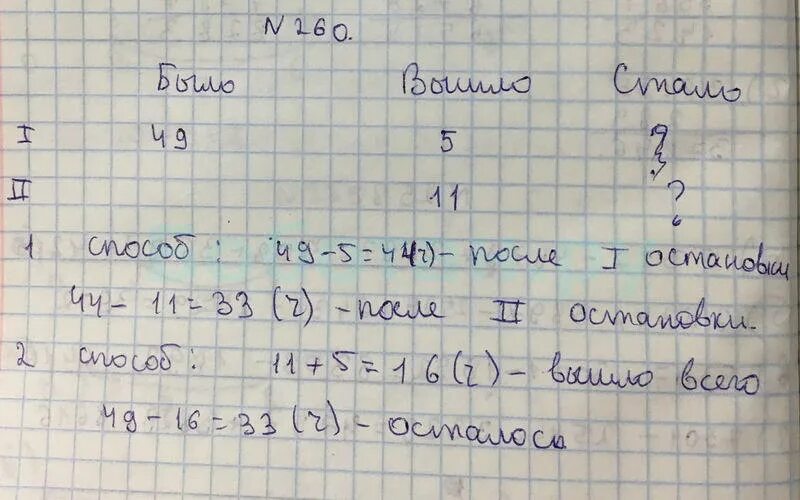 N 260.
Было Вышло Стало
I 49 5 ?
II 11 ?
1 способ: 49-5=44(ч)- после I остановки
44- 11=33 (ч) -после II остановки.
2 способ: 11+5=16(ч)- вышло всего
49-16=33 (ч) - осталось